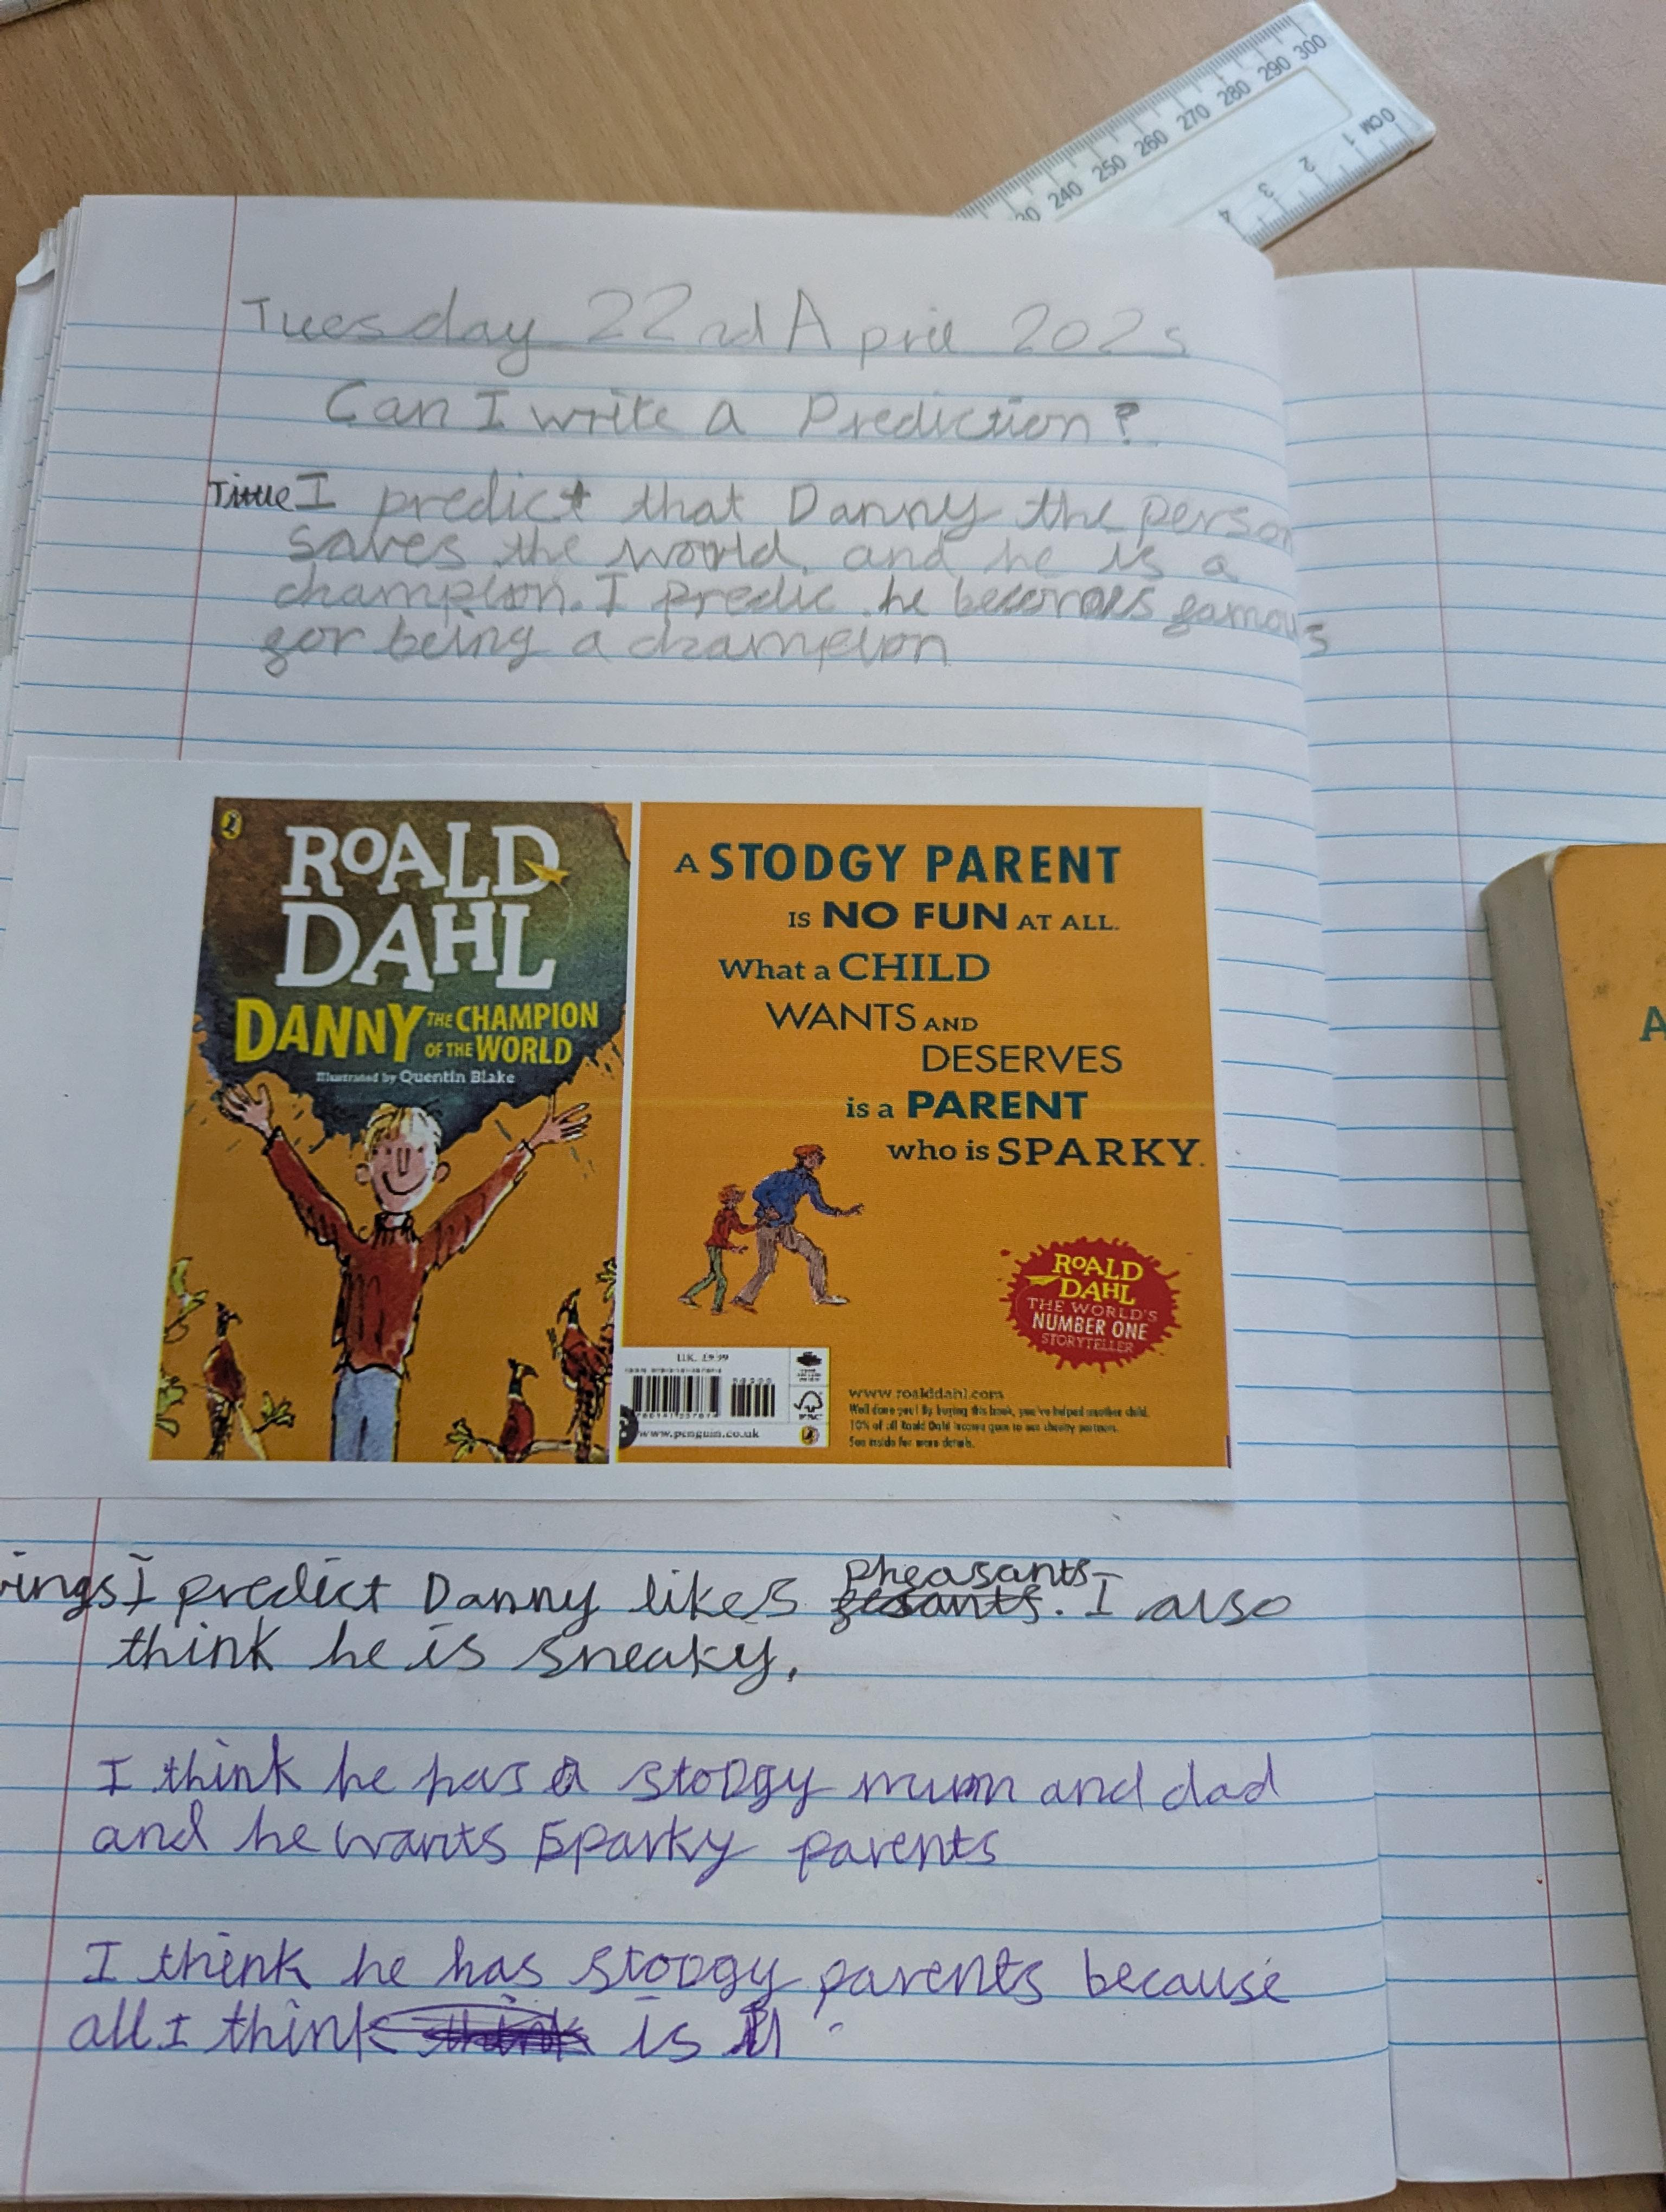 300
290
280
270
260
250
240
30
0CM
1
2
3
4
Tuesday 22nd April 2025
Can I write a Prediction?
Title I predict that Danny the person
saves the world and he is a
champion. I predic he becomes famous
for being a champion
ROALD
DAHL
DANNY THE CHAMPION
OF THE WORLD
Illustrated by Quentin Blake
A STODGY PARENT
IS NO FUN AT ALL.
What a CHILD
WANTS AND
DESERVES
is a PARENT
who is SPARKY.
ROALD
DAHL
THE WORLD'S
NUMBER ONE
STORYTELLER
U.K. £9.99
www.penguin.co.uk
www.roalddahl.com
Well done you! By buying this book, you've helped another child.
10% of all Roald Dahl income goes to our charity partners.
See inside for more details.
A
ings I predict Danny likes pheasants. I also
think he is sneaky.
I think he has a stodgy mum and dad
and he wants sparky parents
I think he has stodgy parents because
all I think think is